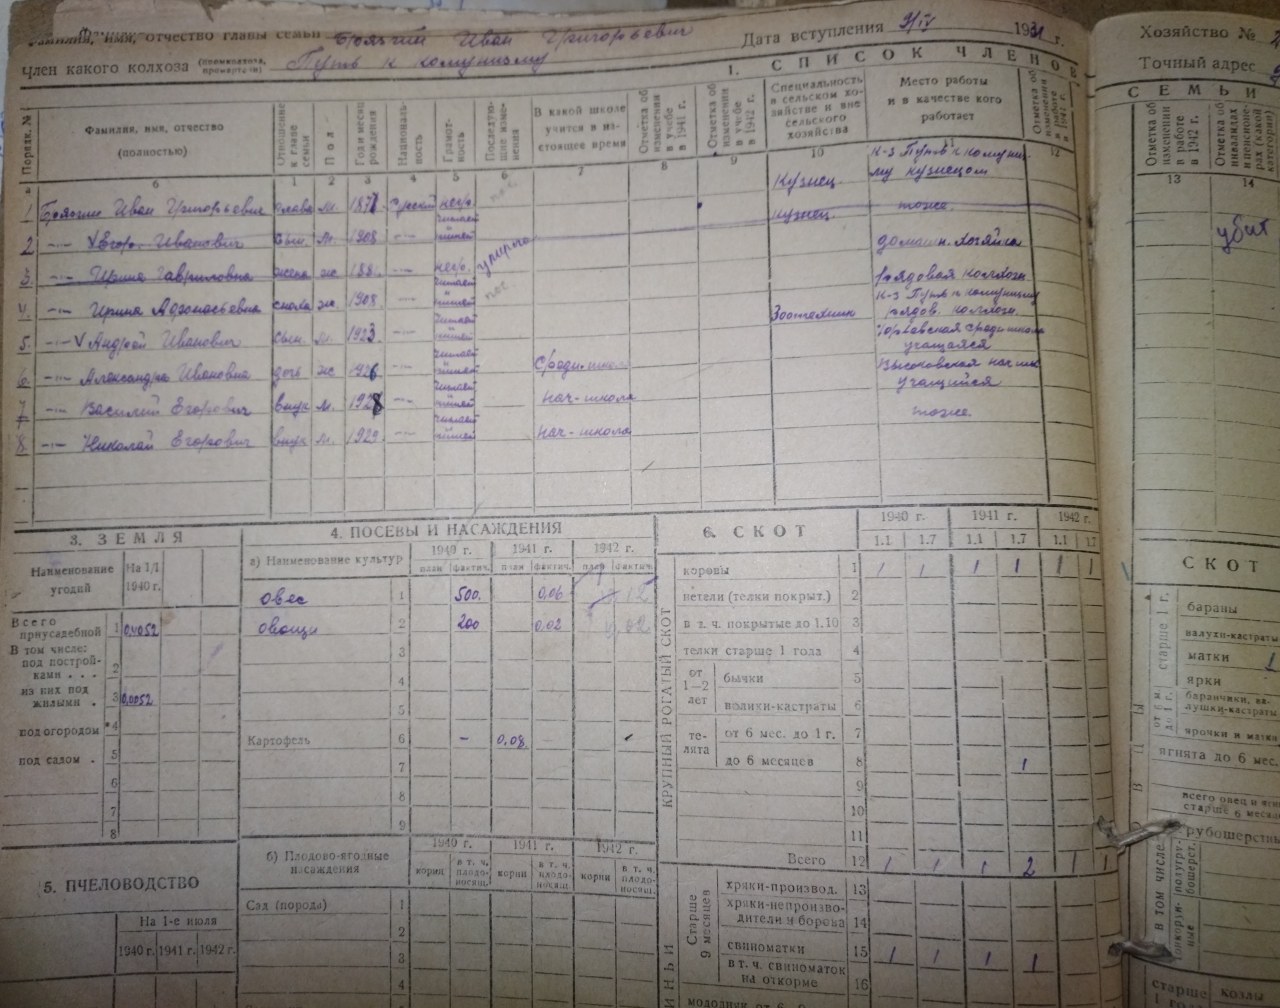 Фамилия, имя, отчество главы семьи Брягин Иван Григорьевич Дата вступления 9/IV 1931 г.
Член какого колхоза Путь к комунизму
1. СПИСОК ЧЛЕНОВ СЕМЬИ
Хозяйство №
Точный адрес
Порядк. №
Фамилия, имя, отчество (полностью)
Отношение к главе семьи
Пол
Год и месяц рождения
Националь-ность
Грамот-ность
Последую-щие изме-нения
В какой школе учится в на-стоящее время
Отметка об изменении в учебе в 1941 г.
Отметка об изменении в учебе в 1942 г.
Специальность в сельском хо-зяйстве и вне сельского хозяйства
Место работы и в качестве кого работает
Отметка об изменении в работе в 1941 г.
Отметка об изменении в работе в 1942 г.
Отметка об инвалидах и пенсионе-рах (какой категории)
б 1 2 3 4 5 6 7 8 9 10 12 13 14
1 Брягин Иван Григорьевич глава м. 1871 русский негр. Кузнец к-з Путь к комуни-зму кузнецом
2 —"— Егор Иванович сын м. 1908 —"— читает пишет кузнец тоже. убит
3. —"— Ирина Гавриловна жена ж негр. умерла домашн. хозяйка
4. —"— Ирина Афонасьевна сноха ж. 1908 —"— читает пишет рядовая колхозн.
5. —"— Андрей Иванович сын м. 1923 —"— читает пишет Зоотехник к-з Путь к комунизму рядов. колхозн.
6 —"— Александра Ивановна дочь ж 1926 —"— читает пишет Средн. школа средн школа учащаяся
7 —"— Василий Егорович внук м. 1928 —"— читает пишет нач-школа Высоковская нач шк учащийся
8 —"— Николай Егорович внук м. 1929 —"— читает пишет нач-школа тоже.
3. ЗЕМЛЯ
Наименование угодий
На 1/I 1940 г.
Всего приусадебной 1
В том числе:
под построй-ками . . . 2
из них под жилыми . 3 0,0052
под огородом *4
под садом . 5
6
7
8
5. ПЧЕЛОВОДСТВО
На 1-е июля
1940 г. 1941 г. 1942 г.
4. ПОСЕВЫ И НАСАЖДЕНИЯ
а) Наименование культур
1940 г. 1941 г. 1942 г.
план фактич. план фактич. план фактич.
овес 1 500. 0,06
овощи 2 200 0,02
3
4
5
Картофель 6 – 0,08
7
8
9
б) Плодово-ягодные насаждения
1940 г. 1941 г. 1942 г.
корни в т. ч. плодо-носящ. корни в т. ч. плодо-носящ. корни в т. ч. плодо-носящ.
Сад (порода) 1
2
3
4
6. СКОТ
1940 г. 1941 г. 1942 г.
1.1 1.7 1.1 1.7 1.1 1.7
КРУПНЫЙ РОГАТЫЙ СКОТ
коровы 1 1 1 1 1 1 1
нетели (телки покрыт.) 2
в т. ч. покрытые до 1.10 3
телки старше 1 года 4
от 1—2 лет
бычки 5
волики-кастраты 6
те-лята
от 6 мес. до 1 г. 7
до 6 месяцев 8 1
9
10
11
Всего 12 1 1 1 2 1 1
Старше 9 месяцев
хряки-производ. 13
хряки-непроизво-дители и борова 14
свиноматки 15 1 1 1 1
в т. ч. свиноматок на откорме 16
СКОТ
старше 1 г.
бараны
валухи-кастраты
матки 1
ярки
от 6 м. до 1 г.
баранчики, ва-лушки-кастраты
ярочки и матки
ягнята до 6 мес.
всего овец и ягн старше 6 месяц
в том числе:
грубошерстны
полугру-бошерст.
старше козлы